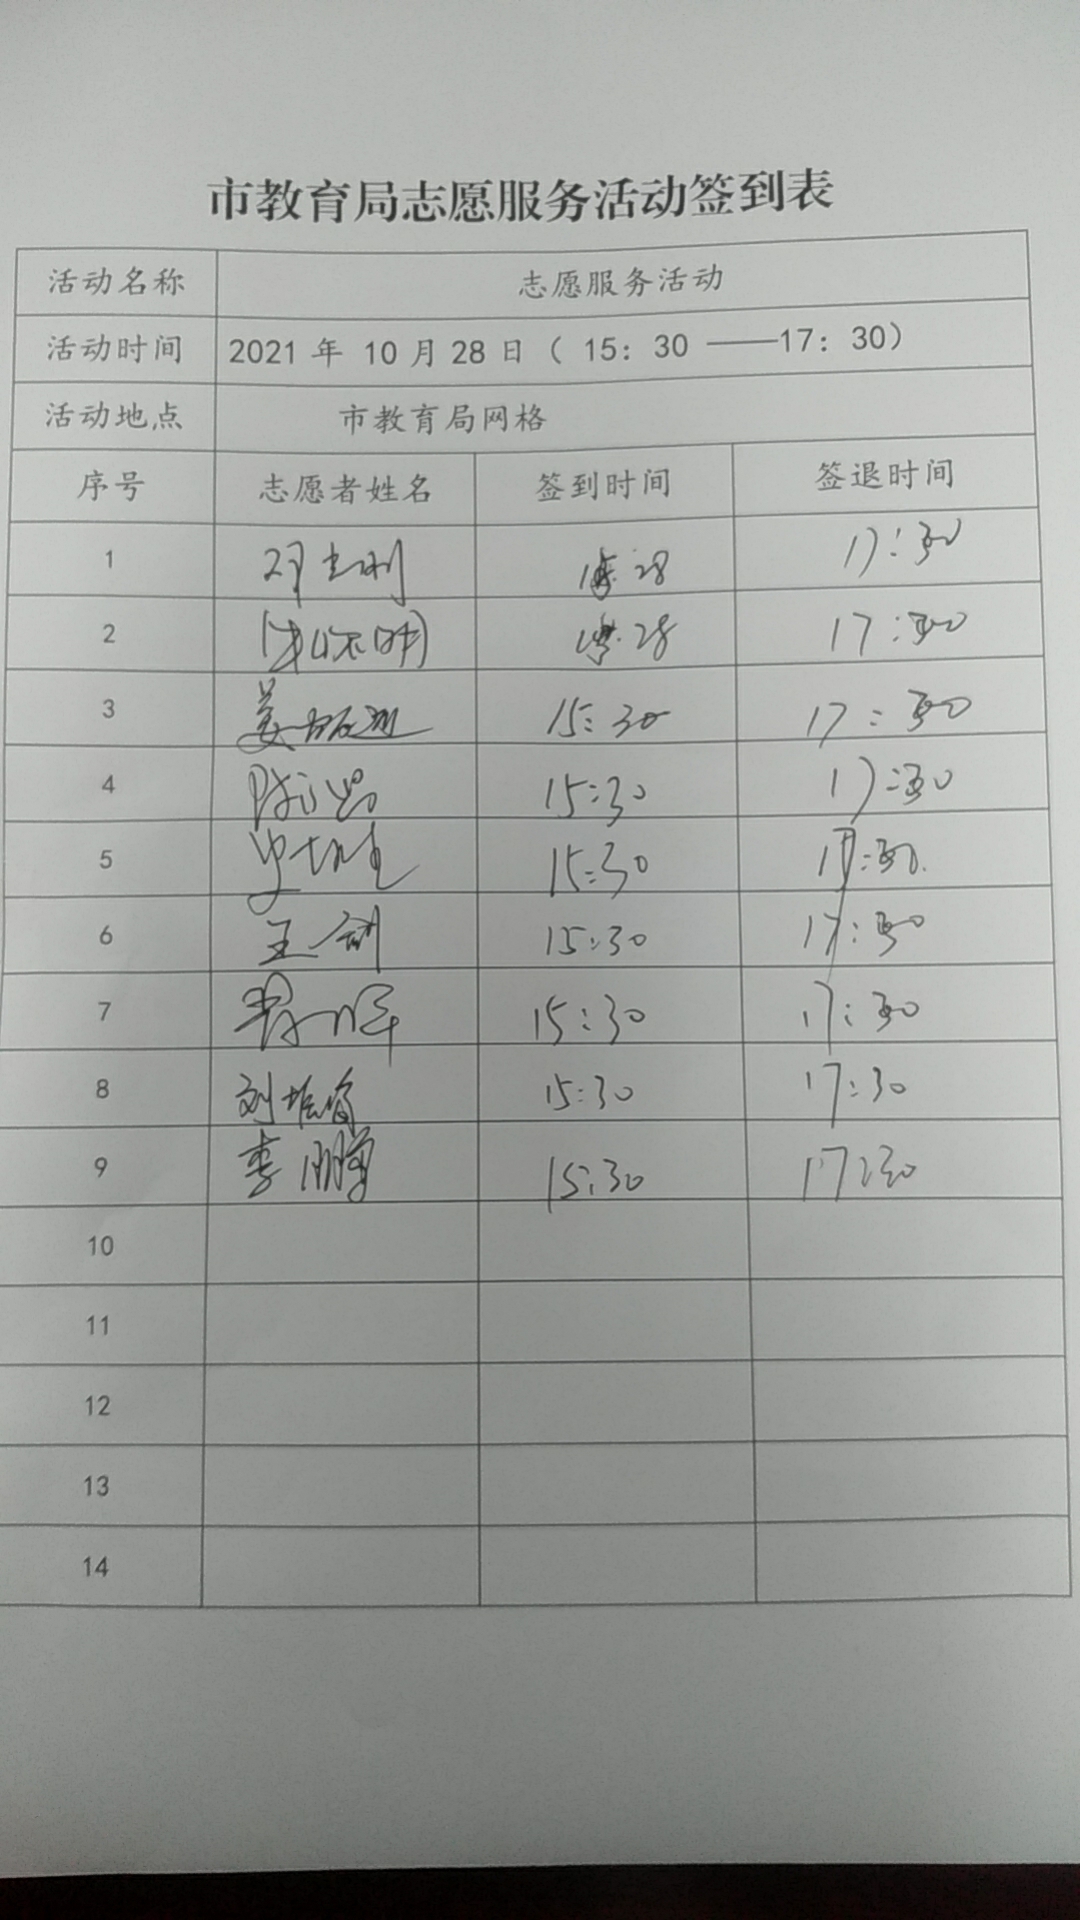 市教育局志愿服务活动签到表
活动名称 志愿服务活动
活动时间 2021 年 10 月 28 日（ 15：30 ——17：30）
活动地点 市教育局网格
序号 志愿者姓名 签到时间 签退时间
1 17:30
2 17:30
3 15:30 17:30
4 15:30 17:30
5 15:30 17:30
6 王剑 15:30 17:30
7 15:30 17:30
8 15:30 17:30
9 李鹏 15:30 17:30
10
11
12
13
14